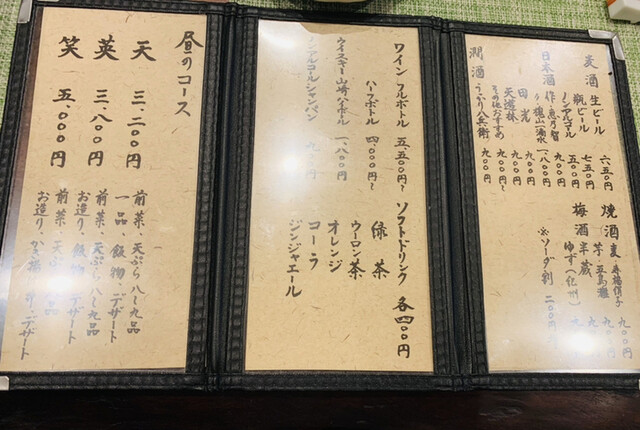 麦酒 生ビール 六五〇円
瓶ビール 七五〇円
ノンアルコール 五〇〇円
日本酒 作・恵乃智 九〇〇円
〃 槐山一滴水 一、八〇〇円
田光 九〇〇円
天遊林 九〇〇円
その他おすすめ 九〇〇円〜
燗酒 るみ子 八兵衛 九〇〇円
焼酒 麦 寿福絹子 九〇〇円
芋 五島灘 九〇
半蔵 九〇
梅酒 ゆず(紀州) 九〇
※ソーダ割 二〇〇円
ワイン フルボトル 五、五〇〇円〜
ハーフボトル 四、〇〇〇円〜
ウイスキー 山崎ハイボール 一、八〇〇円
ノンアルコールシャンパン 九〇〇円
ソフトドリンク 各四〇〇円
緑茶
ウーロン茶
オレンジ
コーラ
ジンジャエール
昼のコース
天 三、二〇〇円 前菜、天ぷら八〜九品
一品、飯物、デザート
英 三、八〇〇円 前菜、天ぷら八〜九品
お造り、飯物、デザート
笑 五、〇〇〇円 前菜、天ぷら 品
お造り、かき揚 丼、デザート